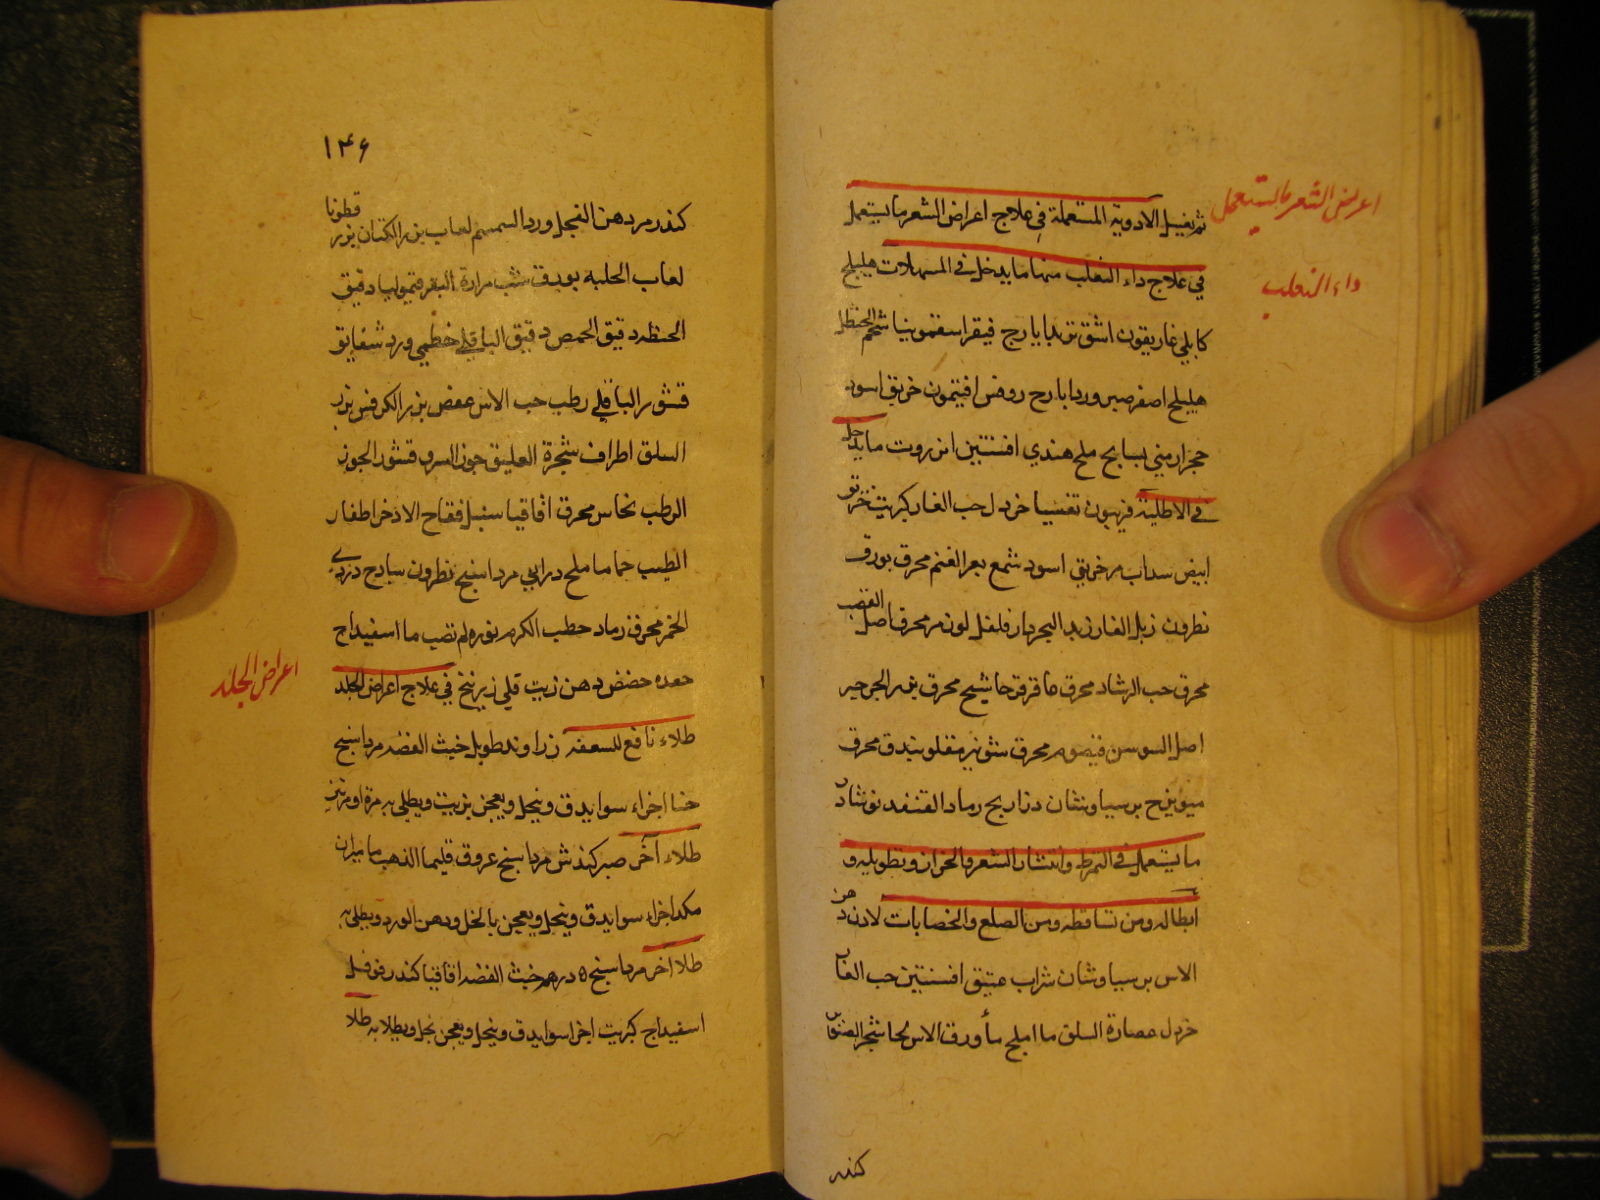 اعراض الشعر ما يستعمل
داء الثعلب
ثم يغسل الادوية المستعملة في علاج اعراض الشعر ما يستعمل
في علاج داء الثعلب منها ما يدخل في المسهلات هليلج
كابلي غاريقون اشق تربد ايارج فيقرا سقمونيا شحم الحنظل
هليلج اصفر صبر ورد ايارج روفس افتيمون خربق اسود
حجر ارمني بسبايج ملح هندي افسنتين انزروت ما يدخل
في الاطلية فربيون تفسيا خردل حب الغار كبريت خربق
ابيض سداب مر خربق اسود شمع بعر الغنم محرق بورق
نطرون زبل الفار زبد البحر دار فلفل لوز مر محرق اصل القصب
محرق حب الرشاد محرق عاقرقرحا شيح محرق بزر الجرجير
اصل السوسن قيصوم محرق شونيز مقلو بندق محرق
ميويزج برسياوشان ذراريح رماد القنفد نوشادر
ما يستعمل في التمرط وانتشار الشعر والحزاز وتطويله و
ابطاله ومن تساقطه ومن الصلع والخضابات لادن دهن
الاس برسياوشان شراب عتيق افسنتين حب الغار
خردل عصارة السلق ما املج ما ورق الاس لحا شجر الصنوبر
كندر
١٤۶
كندر مر دهن الفجل ورد السمسم لعاب بزر الكتان بزر قطونا
لعاب الحلبه بورق شب مرارة البقر قيموليا دقيق
الحنطه دقيق الحمص دقيق الباقلي خطمي ورد شقايق
قشور الباقلي رطب حب الاس عفص بزر الكرفس بزر
السلق اطراف شجرة العليق جوز السرو قشور الجوز
الرطب نحاس محرق اقاقيا سنبل فقاح الاذخر اظفار
الطيب حماما ملح دراني مرداسنج نطرون ساذج دردي
الخمر محرق رماد حطب الكرم نوره لم تصب ما اسفيداج
جعده حضض دهن زيت قلي زرنيخ في علاج اعراض الجلد
اعراض الجلد
طلاء نافع للسعفه زراوند طويل خبث الفضه مرداسنج
حنا اجزاء سوا يدق وينخل ويعجن بزيت ويطلى به مرة او مرتين
طلاء آخر صبر كندش مرداسنج عروق قليميا الذهب ماميران
مكد اجزاء سوا يدق وينخل ويعجن بالخل ودهن الورد ويطلى به
طلا اخر مرداسنج ٥ درهم خبث الفضه اقاقيا كندر فوفل
اسفيداج كبريت اجزا سوا يدق وينخل ويعجن بخل ويطلا به طلا